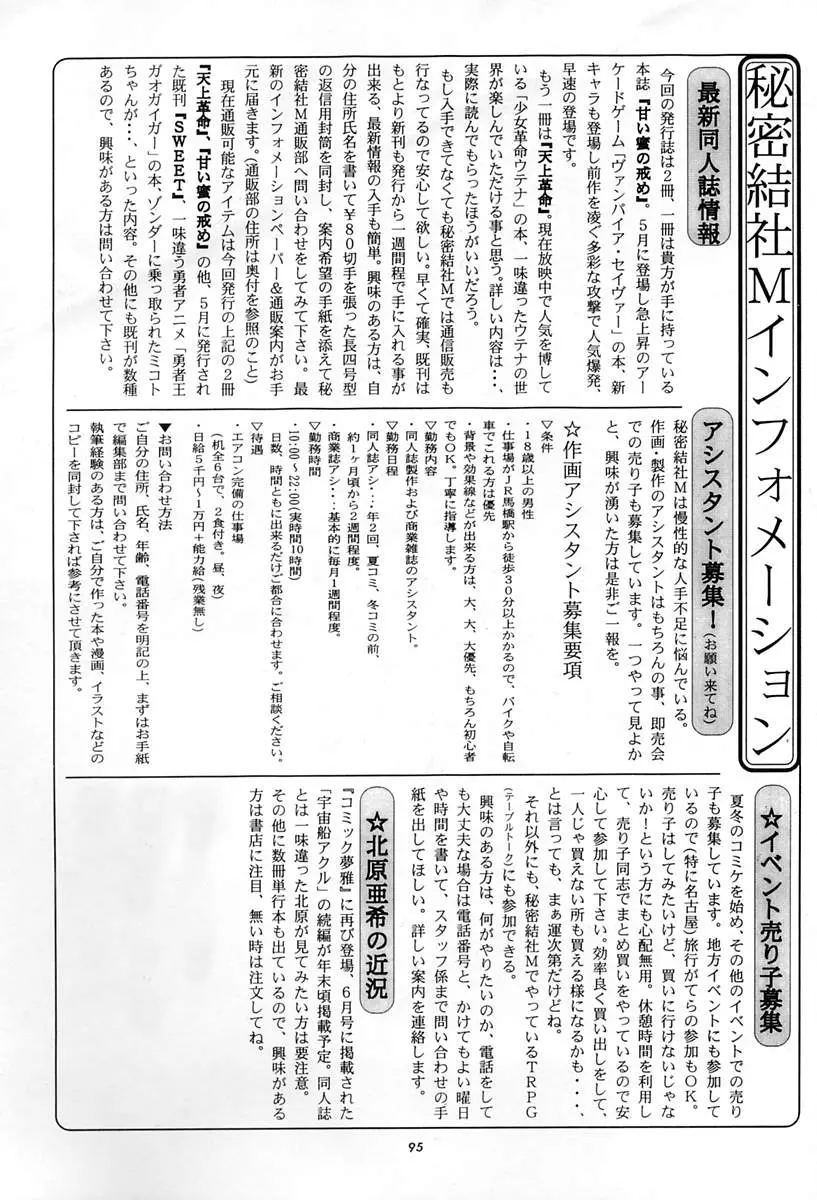 秘密結社Mインフォメーション
最新同人誌情報
今回の発行誌は2冊、一冊は貴方が手に持っている
本誌『甘い蜜の戒め』。5月に登場し急上昇のアー
ケードゲーム「ヴァンパイア・セイヴァー」の本、新
キャラも登場し前作を凌ぐ多彩な攻撃で人気爆発、
早速の登場です。
もう一冊は『天上革命』。現在放映中で人気を博して
いる「少女革命ウテナ」の本、一味違ったウテナの世
界が楽しんでいただける事と思う。詳しい内容は・・、
実際に読んでもらったほうがいいだろう。
もし入手できてなくても秘密結社Mでは通信販売も
行なってるので安心して欲しい。早くて確実、既刊は
もとより新刊も発行から一週間程で手に入れる事が
出来る、最新情報の入手も簡単。興味のある方は、自
分の住所氏名を書いて¥80切手を張った長四号型
の返信用封筒を同封し、案内希望の手紙を添えて秘
密結社M通販部へ問い合わせをしてみて下さい。最
新のインフォメーションペーパー&通販案内がお手
元に届きます。(通販部の住所は奥付を参照のこと)
現在通販可能なアイテムは今回発行の上記の2冊
『天上革命』、『甘い蜜の戒め』の他、5月に発行され
た既刊『SWEET』、一味違う勇者アニメ「勇者王
ガオガイガー」の本、ゾンダーに乗っ取られたミコト
ちゃんが・・、といった内容。その他にも既刊が数種
あるので、興味がある方は問い合わせて下さい。
アシスタント募集!(お願い来てね)
秘密結社Mは慢性的な人手不足に悩んでいる。
作画・製作のアシスタントはもちろんの事、即売会
での売り子も募集しています。一つやって見よか
と、興味が湧いた方は是非ご一報を。
☆作画アシスタント募集要項
▽条件
・18歳以上の男性
・仕事場がJR馬橋駅から徒歩30分以上かかるので、バイクや自転
車でこれる方は優先
・背景や効果線などが出来る方は、大、大、大優先、もちろん初心者
でもOK。丁寧に指導します。
▽勤務内容
・同人誌製作および商業雑誌のアシスタント。
▽勤務日程
・同人誌アシ・・・年2回、夏コミ、冬コミの前、
約1ヶ月頃から2週間程度。
・商業誌アシ・・・基本的に毎月1週間程度。
▽勤務時間
・10:00〜22:00(実時間10時間)
日数、時間ともに出来るだけご都合に合わせます。ご相談ください。
▽待遇
・エアコン完備の仕事場
(机全6台で、2食付き。昼、夜)
・日給5千円〜1万円+能力給(残業無し)
▼お問い合わせ方法
ご自分の住所、氏名、年齢、電話番号を明記の上、まずはお手紙
で編集部まで問い合わせて下さい。
執筆経験のある方は、ご自分で作った本や漫画、イラストなどの
コピーを同封して下されば参考にさせて頂きます。
☆イベント売り子募集
夏冬のコミケを始め、その他のイベントでの売り
子も募集しています。地方イベントにも参加して
いるので(特に名古屋)旅行がてらの参加もOK。
売り子はしてみたいけど、買いに行けないじゃな
いか!という方にも心配無用。休憩時間を利用し
て、売り子同志でまとめ買いをやっているので安
心して参加して下さい。効率良く買い出しをして、
一人じゃ買えない所も買える様になるかも・・・、
とは言っても、まぁ運次第だけどね。
それ以外にも、秘密結社MでやっているTRPG
(テーブルトーク)にも参加できる。
興味のある方は、何がやりたいのか、電話をして
も大丈夫な場合は電話番号と、かけてもよい曜日
や時間を書いて、スタッフ係まで問い合わせの手
紙を出してほしい。詳しい案内を連絡します。
☆北原亜希の近況
『コミック夢雅』に再び登場、6月号に掲載された
「宇宙船アクル」の続編が年末頃掲載予定。同人誌
とは一味違った北原が見てみたい方は要注意。
その他に数冊単行本も出ているので、興味がある
方は書店に注目、無い時は注文してね。
95